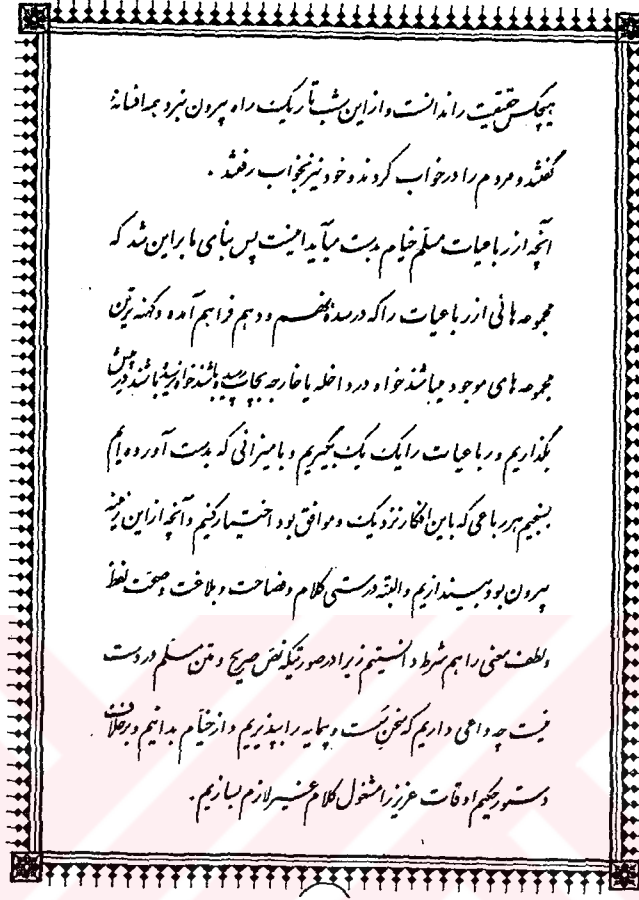 هیچکس حقیقت را ندانست و از این شب تاریک راه بیرون نبرد همه افسانهٔ
گفتند و مردم را در خواب کردند و خود نیز بخواب رفتند .
آنچه از رباعیات مسلم خیام بدست میآید اینست پس بنای ما براین شد که
مجموعه هائی از رباعیات را که در سدهٔ نهم و دهم فراهم آمده و کهنه ترین
مجموعه های موجود میباشند خواه در داخله یا خارجه بچاپ رسیده باشند خواه نرسیده باشند در پیش
بگذاریم و رباعیات را یک یک بگیریم و با میزانی که بدست آورده ایم
بسنجیم هر رباعی که باین افکار نزدیک و موافق بود اختیار کنیم و آنچه از این زمینه
بیرون بود بیندازیم و البته درستی کلام و فصاحت و بلاغت و صحت لفظ
و لطف معنی را هم شرط دانستیم زیرا در صورتیکه نص صریح و متن مسلم در دست
نیست چه داعی داریم که سخن سست و بیمایه را بپذیریم و از خیام بدانیم و برخلاف
دستور حکیم اوقات عزیز را مشغول کلام غیر لازم بسازیم .